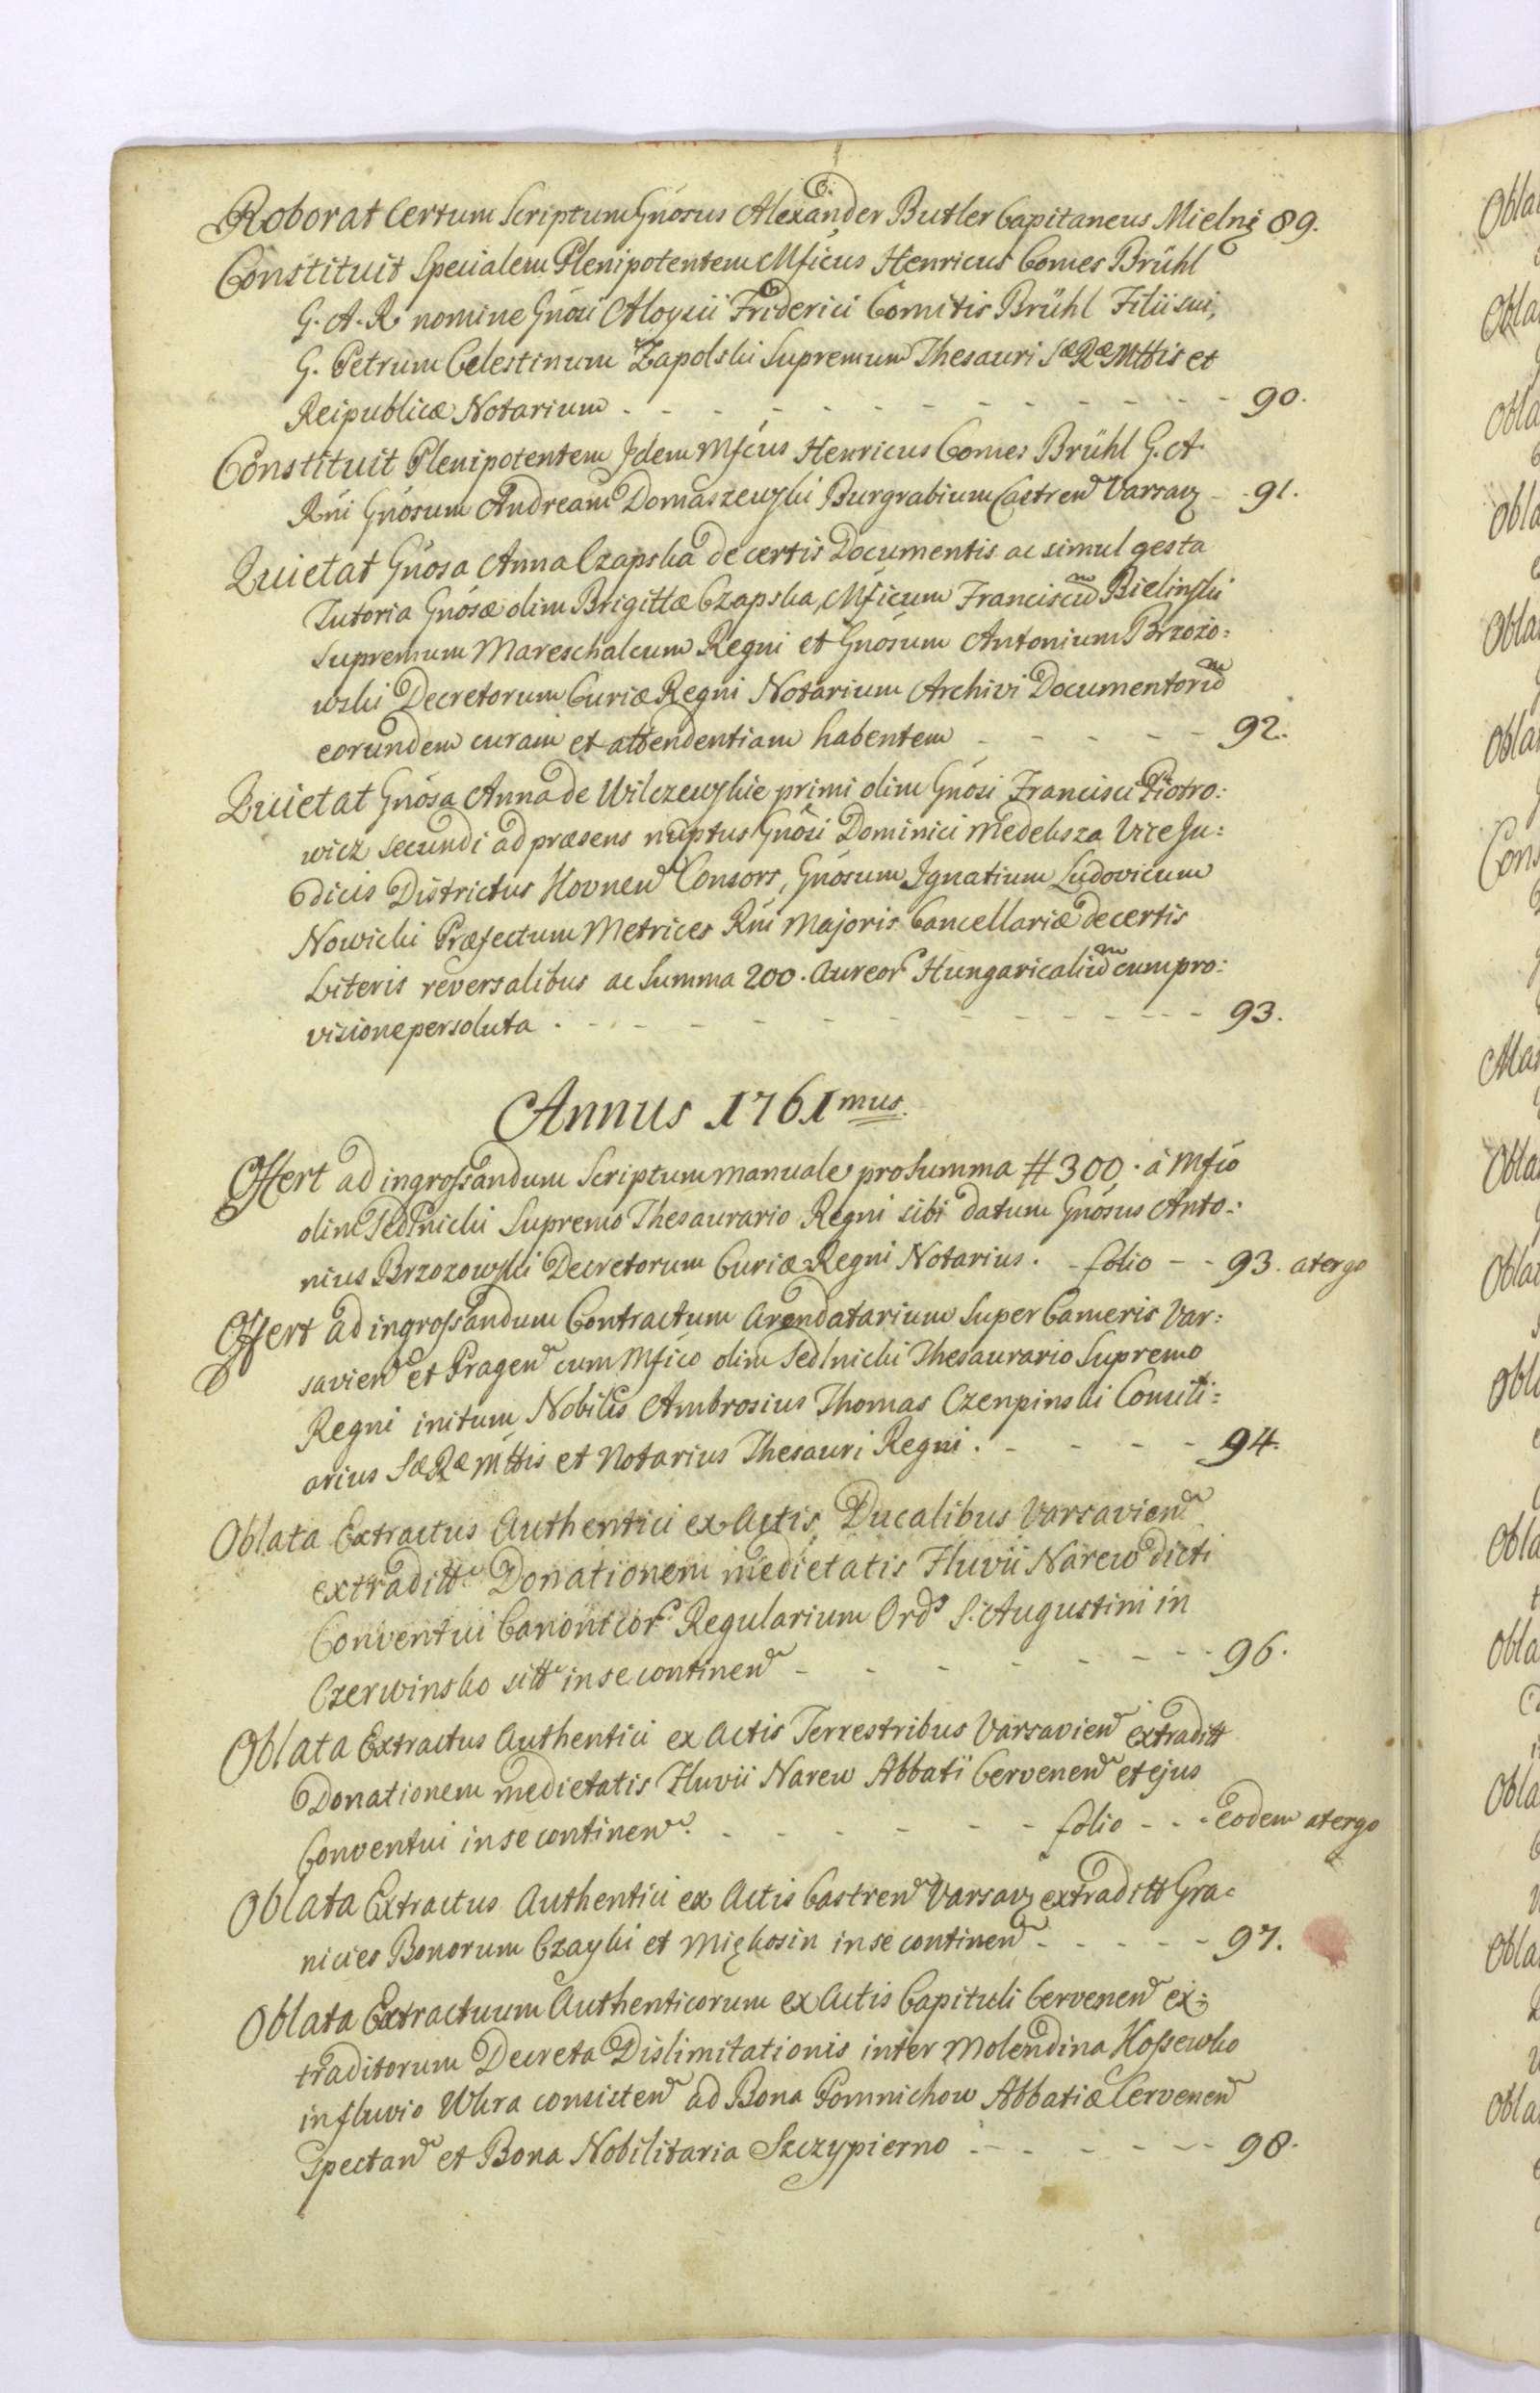 6.
Roborat Certum Scriptum Gnosus Alexander Butler Capitaneus Mielnz 89.
Constituit Specialem Plenipotentem Mficus Henricus Comes Brühl
G. A. R. nomine Gnosi Aloysii Friderici Comitis Brühl Filii sui,
G. Petrum Celestinum Zapolski Supremum Thesauri Sæ Ræ Mttis et
Reipublicæ Notarium - - - 90.
Constituit Plenipotentem Idem Mfcus Henricus Comes Brühl G. A.
Rni Gnosum Andream Domaszewski Burgrabium Castren Varsav - 91.
Quietat Gnosa Anna Czapska de certis Documentis ac simul gesta
Tutoria Gnosæ olim Brigittæ Czapska, Mficum Franciscum Bielinski
Supremum Mareschalcum Regni et Gnosum Antonium Brzozo:
wski Decretorum Curiæ Regni Notarium Archivi Documentorum
eorundem curam et attendentiam habentem - - - 92.
Quietat Gnosa Anna de Wilczewskie primi olim Gnosi Francisci Piotro:
wicz secundi ad præsens nuptus Gnosi Dominici Medeksza Vice Ju:
dicis Districtus Kovnen Consors, Gnosum Ignatium Ludovicum
Nowicki Præfectum Metrices Rni Majoris Cancellariæ de certis
Literis reversalibus ac Summa 200. Aureor Hungaricalium cum pro:
visione persoluta - - - 93.
Annus 1761mus.
Offert ad ingrossandum Scriptum manuale pro Summa # 300. à Mfco
olim Sedlnicki Supremo Thesaurario Regni sibi datum Gnosus Anto:
nius Brzozowski Decretorum Curiæ Regni Notarius. - folio - - 93. atergo
Offert ad ingrossandum Contractum Arendatarium Super Cameris Var:
savien et Pragen cum Mfico olim Sedlnicki Thesaurario Supremo
Regni initum Nobilis Ambrosius Thomas Czenpinski Consili:
arius Sæ Ræ Mttis et Notarius Thesauri Regni. - - - 94.
Oblata Extractus Authentici ex Actis Ducalibus Varsavien
extraditt Donationem medietatis Fluvii Narew dicti
Conventui Canonicor Regularium Ords S. Augustini in
Czerwinsko sitt in se continen - - - 96.
Oblata Extractus Authentici ex Actis Terrestribus Varsavien extraditt
Donationem medietatis Fluvii Narew Abbati Cervenen et ejus
Conventui in se continen. - - - folio - - - eodem atergo
Oblata Extractus Authentici ex Actis Castren Varsav extraditt Gra=
nicies Bonorum Czayki et Miękosin in se continen - - - 97.
Oblata Extractuum Authenticorum ex Actis Capituli Cervenen ex:
traditorum Decreta Dislimitationis inter Molendina Kossewko
in fluvio Wkra consisten ad Bona Pomnichow Abbatiæ Cervenen
Spectan et Bona Nobilitaria Szczypierno - - - 98.